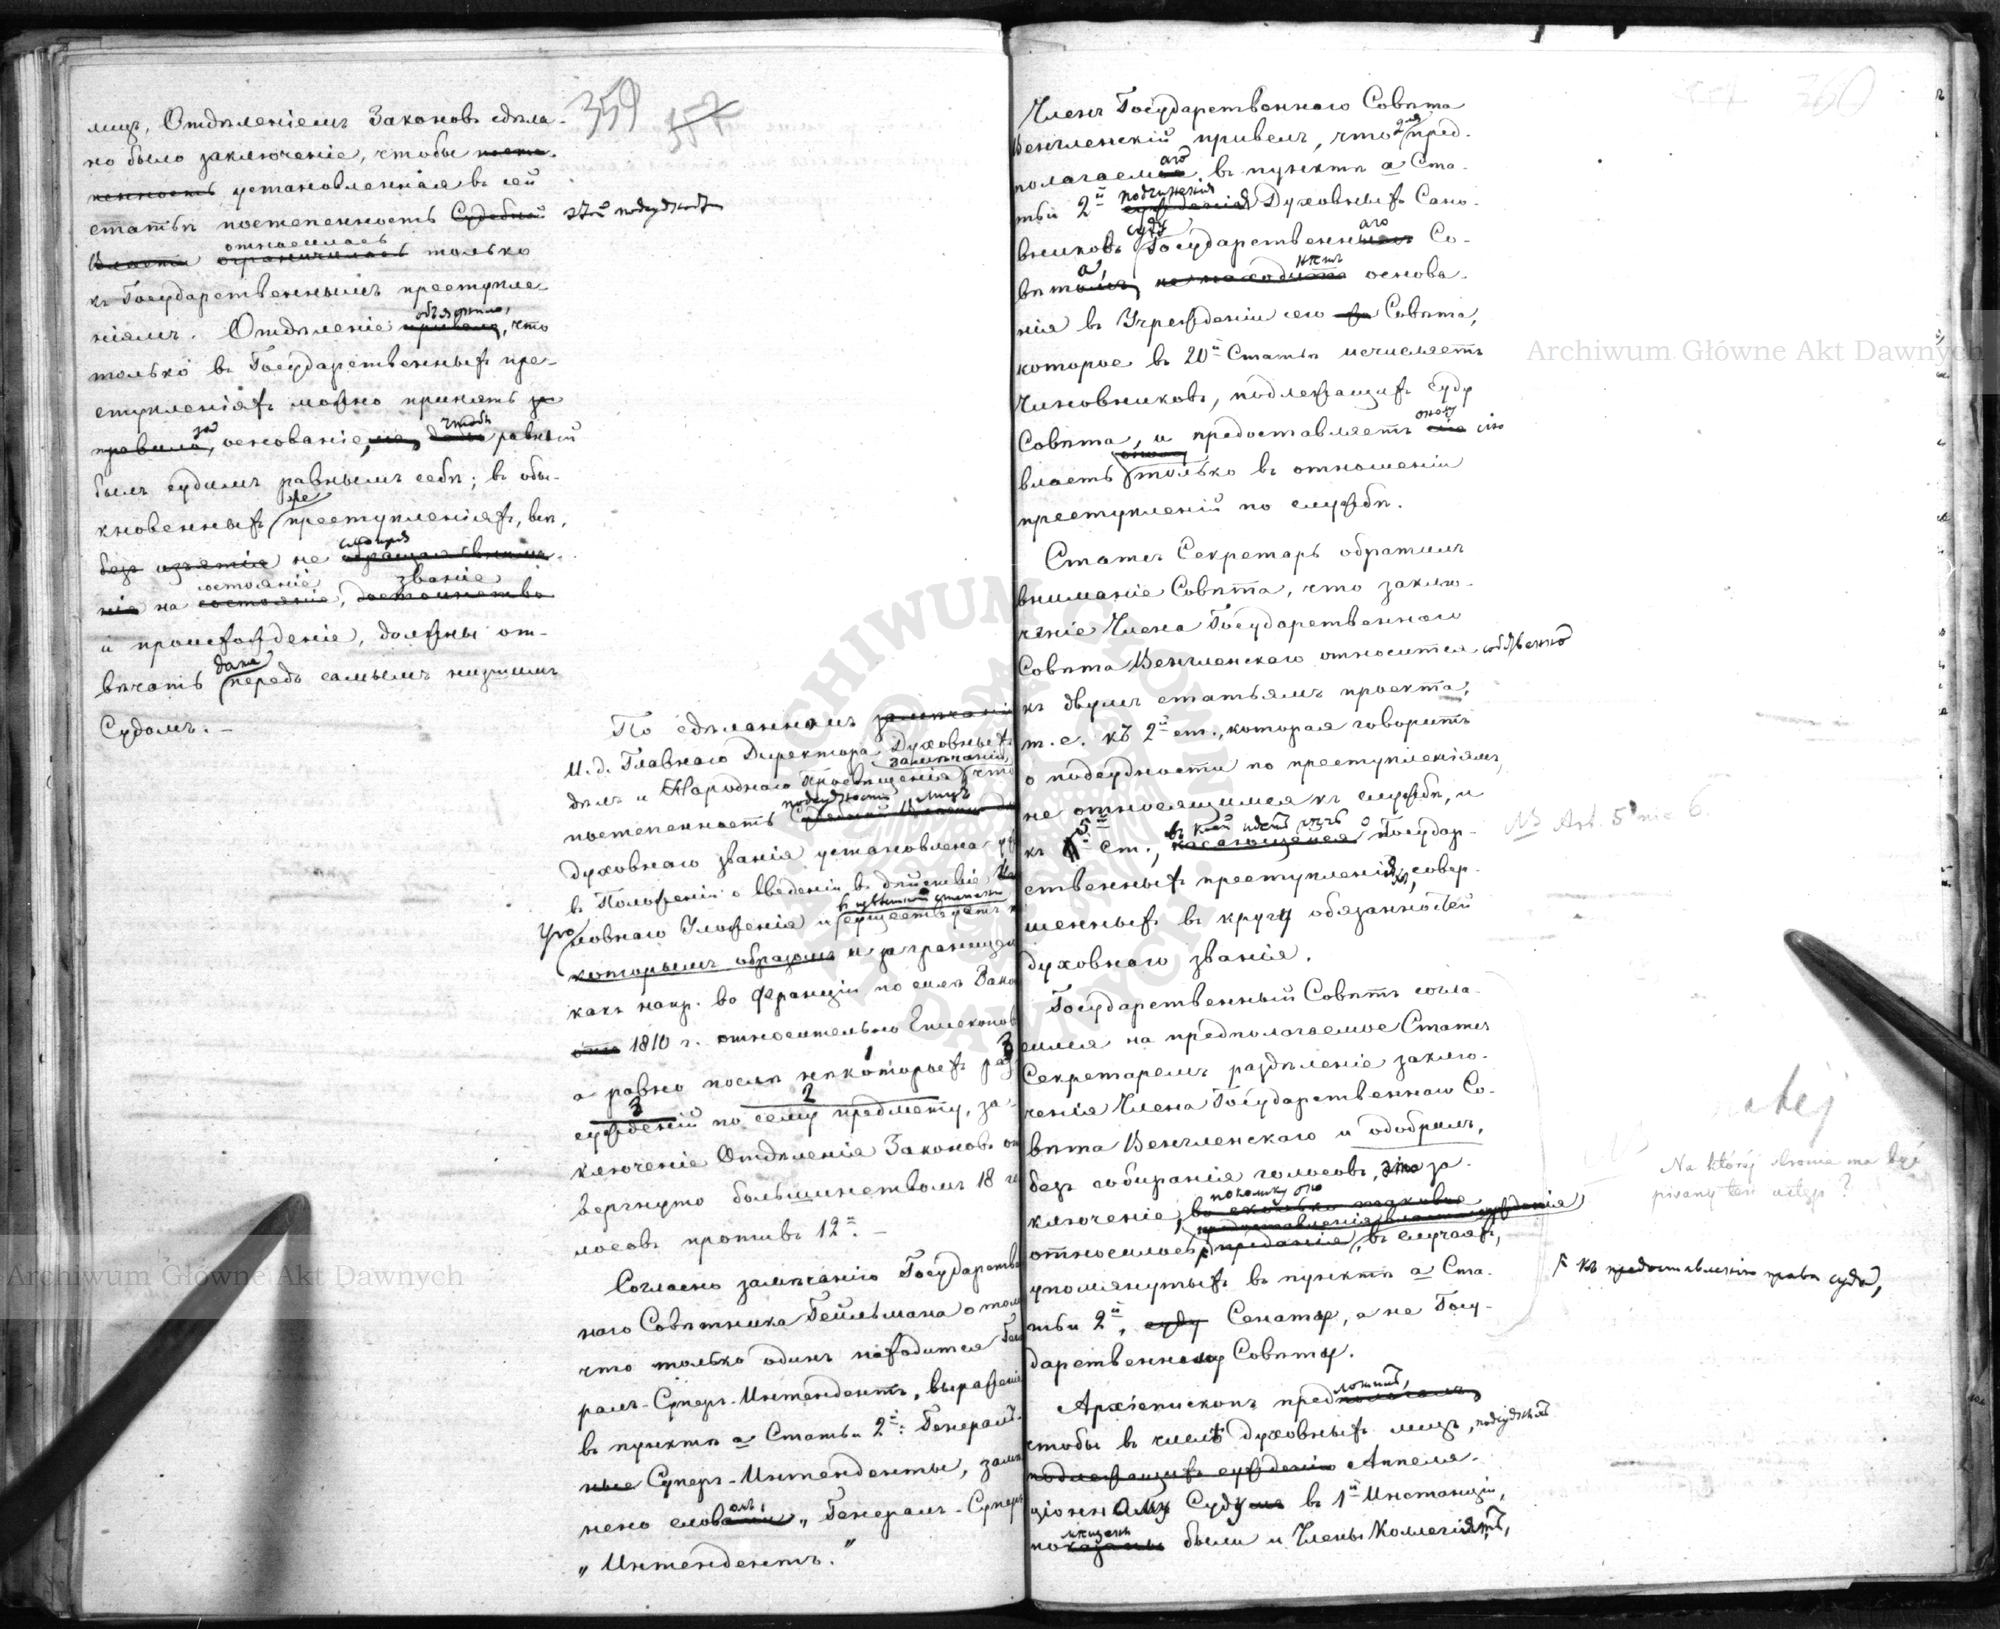 359
лицъ, Отдѣленіемъ Законовъ сдѣла-
но было заключеніе, чтобы посте-
пенность установленная въ сей
статьѣ постепенность Судебной этой подсудности
Власти ограничилась относилась только
къ Государственнымъ преступле
ніямъ. Отдѣленіе привело объяснило, что
только въ Государственныхъ пре-
ступленіяхъ можно принять за
правило, за основаніе, чтобы равный
былъ судимъ равнымъ себѣ; въ обы-
кновенныхъ же преступленіяхъ, всѣ,
безъ изъятія не смотря обращая внима-
нія на состояніе, достоинство званіе
и происхожденіе, должны от-
вѣчать даже передъ самымъ низшимъ
Судомъ. –
По сдѣланномъ
И. д. Главнаго Директора Духовныхъ
дѣлъ и Народнаго Просвѣщенія замѣчаніи, что
постепенность подсудности лицъ Судебной
духовнаго званія установлена
въ Положеніи о введеніи въ дѣйствіе
Уголовнаго Уложенія и въ нѣкоторой степени существуетъ
которымъ образомъ и за границею
какъ напр. во Франціи по силѣ Зако
1810 г. относительно Епископовъ
а равно послѣ нѣкоторыхъ раз
сужденій по сему предмету, за-
ключеніе Отдѣленія Законовъ от
вергнуто большинствомъ 18 го
лосовъ противъ 12.= –
Согласно замѣчанію Государствен
наго Совѣтника Гейльмана о томъ
что только одинъ находится Гене
ралъ-Суперъ-Интендентъ, выраженіе
въ пунктѣ а Статьи 2й: Генералъ-
ные Суперъ-Интенденты, замѣ
нено словомъ, „Генералъ-Суперъ
„Интендентъ."
360
Членъ Государственнаго Совѣта
Венгленскій привелъ, что для пред-
полагаемаго въ пунктѣ а Ста-
тьи 2й подчиненія сужденія Духовныхъ Сано-
вниковъ суду Государственнаго Со-
вѣта, не находитъ нѣтъ основа-
нія въ Учрежденіи сего Совѣта,
которое въ 20й Статьѣ исчисляетъ
Чиновниковъ, подлежащихъ суду
Совѣта, и предоставляетъ оному сію
власть только въ отношеніи
преступленій по службѣ.
Статсъ Секретарь обратилъ
вниманіе Совѣта, что заклю-
ченіе Члена Государственнаго
Совѣта Венгленскаго относится собственно
къ двумъ статьямъ проекта,
т. е. къ 2й ст., которая говоритъ
о подсудности по преступленіямъ
не относящимся къ службѣ, и
къ 5й Ст., въ коей идетъ рѣчь о касающейся Государ-
ственныхъ преступленіяхъ, совер-
шенныхъ въ кругу обязанностей
духовнаго званія.
NB Art. 5 nie 6.
Государственный Совѣтъ согла-
сился на предполагаемое Статсъ
Секретаремъ раздѣленіе заклю-
ченія Члена Государственнаго Со-
вѣта Венгленскаго и одобрилъ,
безъ собиранія голосовъ, это за-
ключеніе, поколику оно
относилось, въ случаяхъ,
упомянутыхъ въ пунктѣ а Ста-
тьи 2й, суду Сенату, а не Госу-
дарственному Совѣту.
къ предоставленію права суда,
Na której stronie ma być
pisany ten ustęp?
Архіепископъ предложилъ,
чтобы въ числѣ духовныхъ лицъ, подсудныхъ
подлежащихъ сужденію Аппеля-
ціонному Суду въ 1й Инстанціи,
показаны были и Члены Коллегіятъ,
Archiwum Główne Akt Dawnych
Archiwum Główne Akt Dawnych
ARCHIWUM GŁÓWNE AKT DAWNYCH